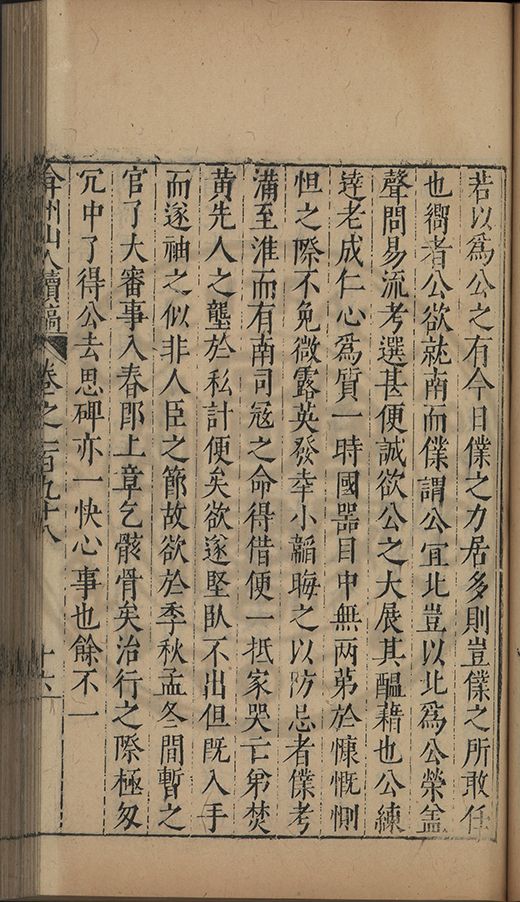 若以爲公之有今日僕之力居多則豈僕之所敢任
也嚮者公欲就南而僕謂公宜北豈以北爲公榮盖
聲問易流考選甚便誠欲公之大展其醖藉也公練
逹老成仁心爲質一時國噐目中無两第於慷慨惻
怛之際不免微露英發幸小韜晦之以防忌者僕考
滿至淮而有南司冦之命得借便一抵家哭亡弟焚
黃先人之壟於私計便矣欲遂堅臥不出但既入手
而遂袖之似非人臣之節故欲於季秋孟冬間暫之
官了大審事入春郎上章乞骸骨矣治行之際極匆
冗中了得公去思碑亦一快心事也餘不一
弇州山人續稿 卷之一百九十八 十六